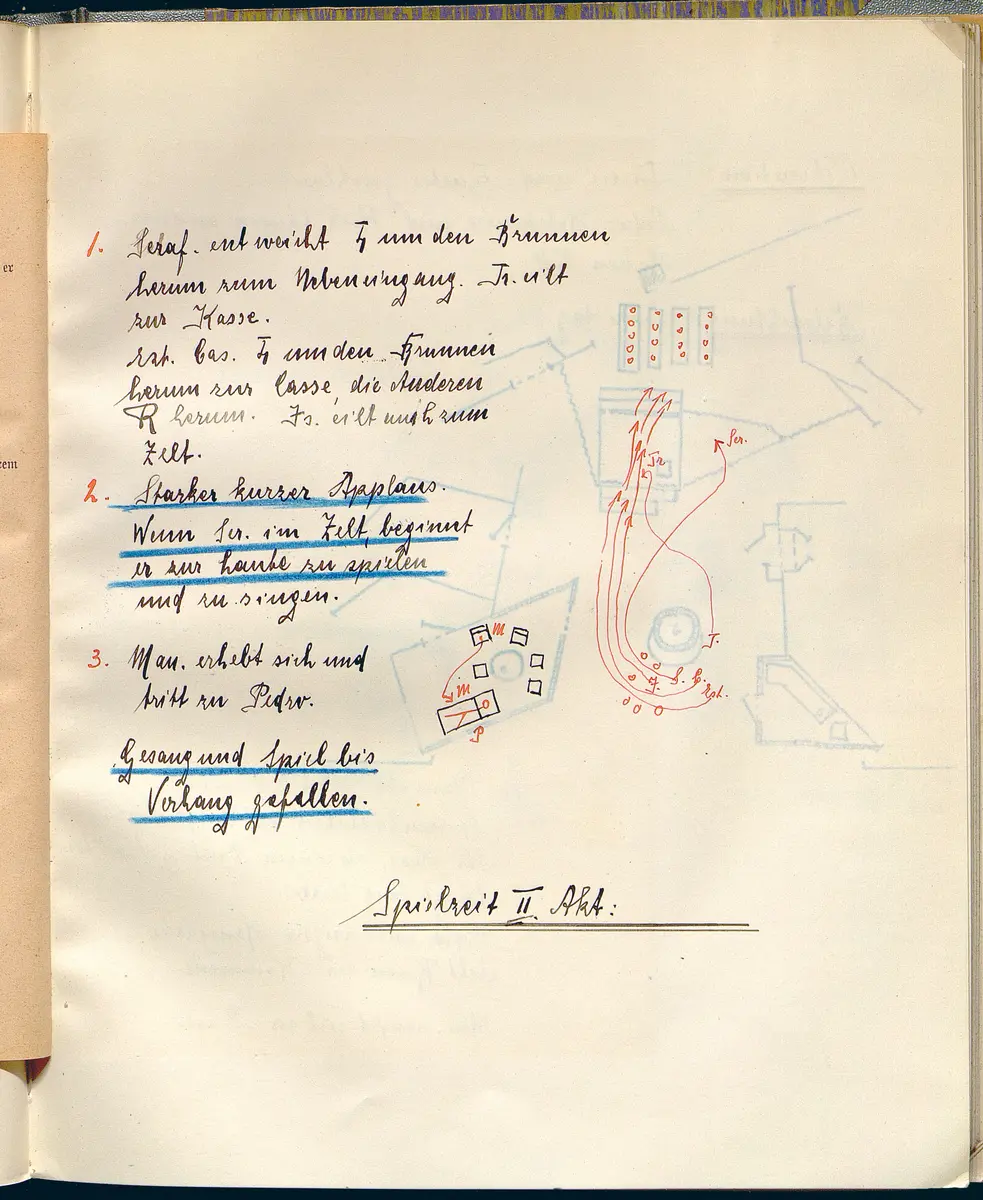 er
zem
1. Seraf. entweicht L um den Brunnen
herum zum Nebeneingang. Tr. eilt
zur Kasse.
Est. Cas. L um den Brunnen
herum zur Casse, die Anderen
R herum. Is. eilt auch zum
Zelt.
2. Starker kurzer Applaus.
Wenn Ser. im Zelt, beginnt
er zur Laute zu spielen
und zu singen.
3. Man. erhebt sich und
tritt zu Pedro.
Gesang und Spiel bis
Vorhang gefallen.
Ser.
Tr
T.
S. C.
F.
Est.
M
M
P
Spielzeit II. Akt: